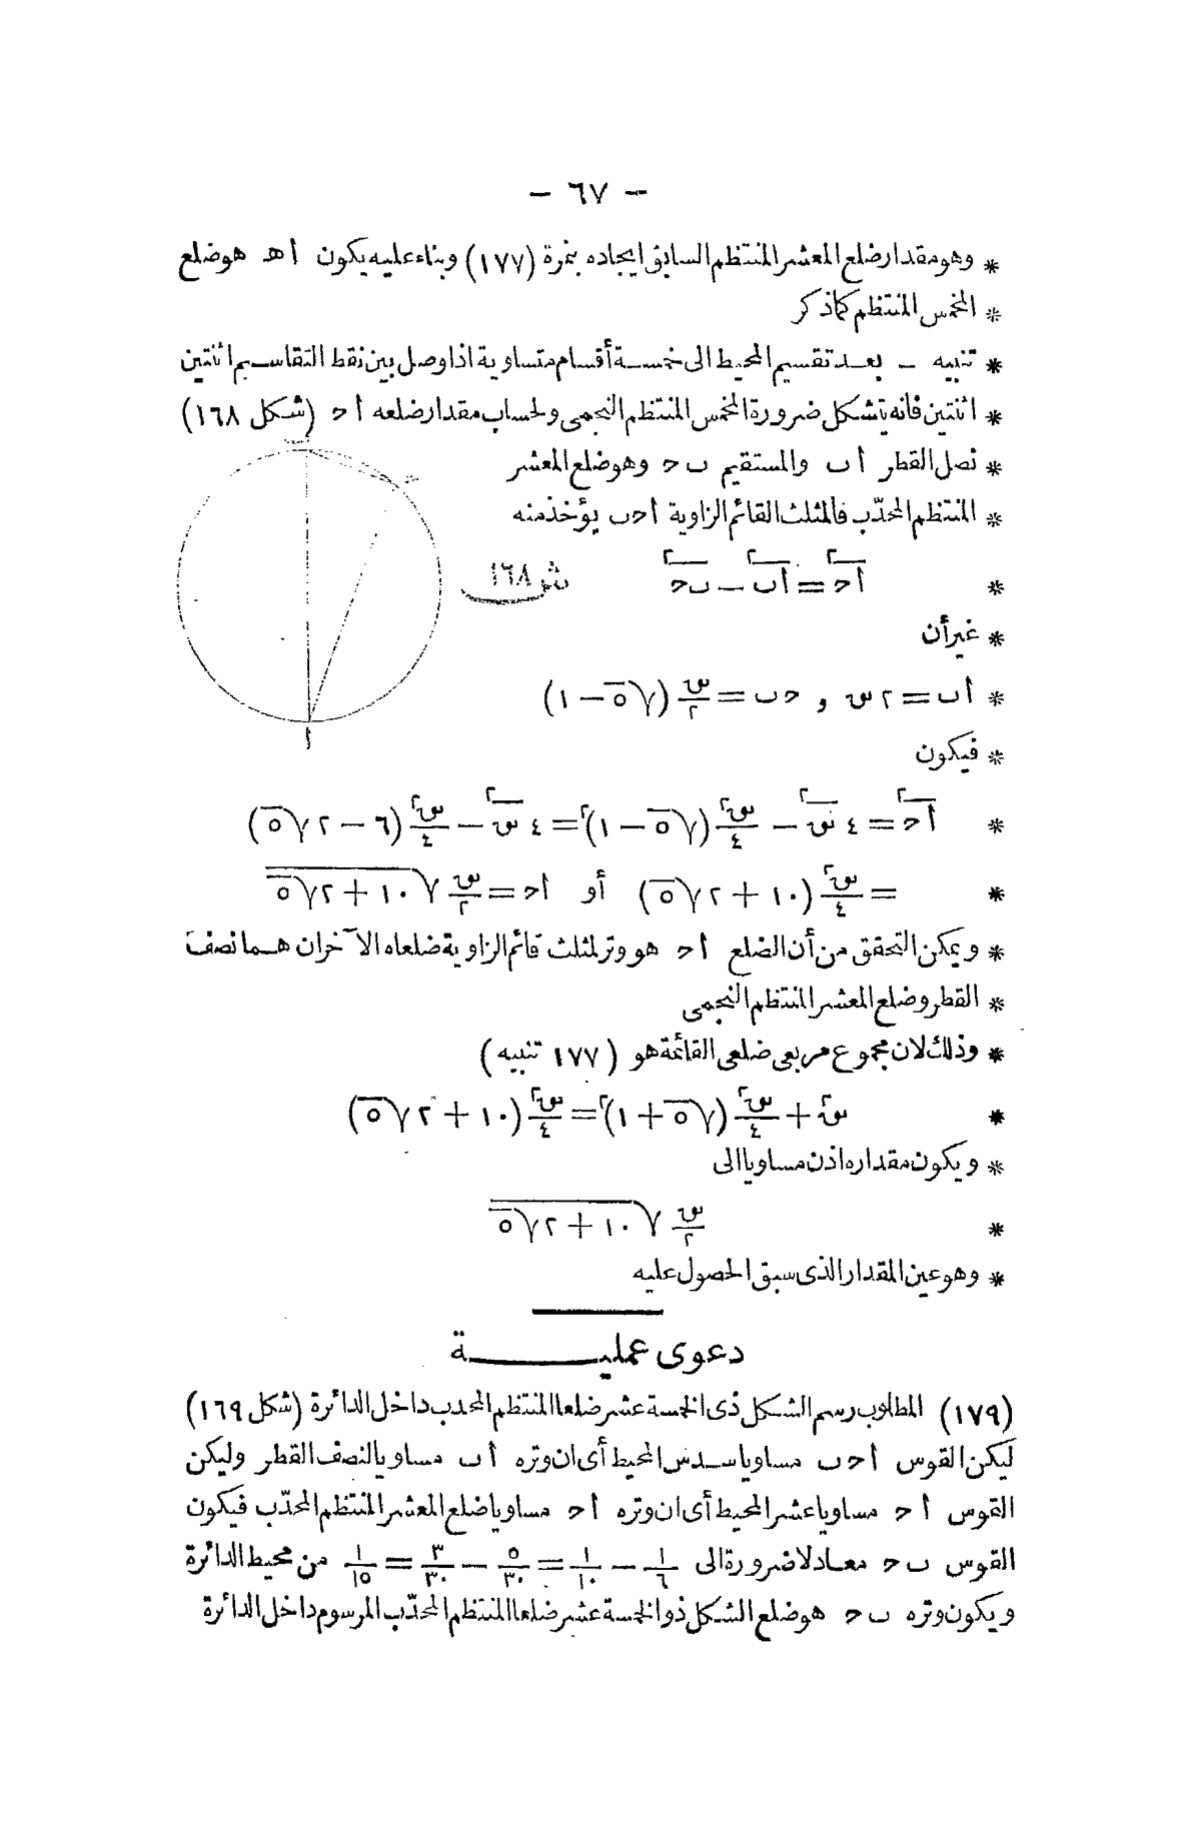 - ٦٧ -
* وهو مقدار ضلع المعشر المنتظم السابق ايجاده بنمرة (١٧٧) وبناء عليه يكون أ ه هو ضلع
* المخمس المنتظم كما ذكر
* تنبيه - بعد تقسيم المحيط الى خمسة أقسام متساوية اذا وصل بين نقط التقاسيم اثنتين
* اثنتين فانه يتشكل ضرورة المخمس المنتظم النجمى ولحساب مقدار ضلعه أ ح (شكل ١٦٨)
* نصل القطر أ ب والمستقيم ب ح وهو ضلع المعشر
* المنتظم المحدّب فالمثلث القائم الزاوية أ ح ب يؤخذ منه
* أح٢ = أب٢ - بح٢
ش ١٦٨
* غير أن
* أب = ٢ س و حب = س/٢ (√٥ - ١)
أ
* فيكون
* أح٢ = ٤ س٢ - س٢/٤ (√٥ - ١)٢ = ٤ س٢ - س٢/٤ (٦ - ٢√٥)
* = س٢/٤ (١٠ + ٢√٥) أو أح = س/٢ √(١٠ + ٢√٥)
* ويمكن التحقق من أن الضلع أ ح هو وتر لمثلث قائم الزاوية ضلعاه الآخران هما نصف
* القطر وضلع المعشر المنتظم النجمى
* وذلك لان مجموع مربعى ضلعى القائمة هو (١٧٧ تنبيه)
* س٢ + س٢/٤ (√٥ + ١)٢ = س٢/٤ (١٠ + ٢√٥)
* ويكون مقداره اذن مساويا الى
* س/٢ √(١٠ + ٢√٥)
* وهو عين المقدار الذى سبق الحصول عليه
دعوى عملية
(١٧٩) المطلوب رسم الشكل ذى الخمسة عشر ضلعا المنتظم المحدب داخل الدائرة (شكل ١٦٩)
ليكن القوس أ ح ب مساويا سدس المحيط أى ان وتره أ ب مساويا لنصف القطر وليكن
القوس أ ح مساويا عشر المحيط أى ان وتره أ ح مساويا ضلع المعشر المنتظم المحدّب فيكون
القوس ب ح معادلا ضرورة الى ١/٦ - ١/١٠ = ٥/٣٠ - ٣/٣٠ = ١/١٥ من محيط الدائرة
ويكون وتره ب ح هو ضلع الشكل ذو الخمسة عشر ضلعا المنتظم المحدّب المرسوم داخل الدائرة